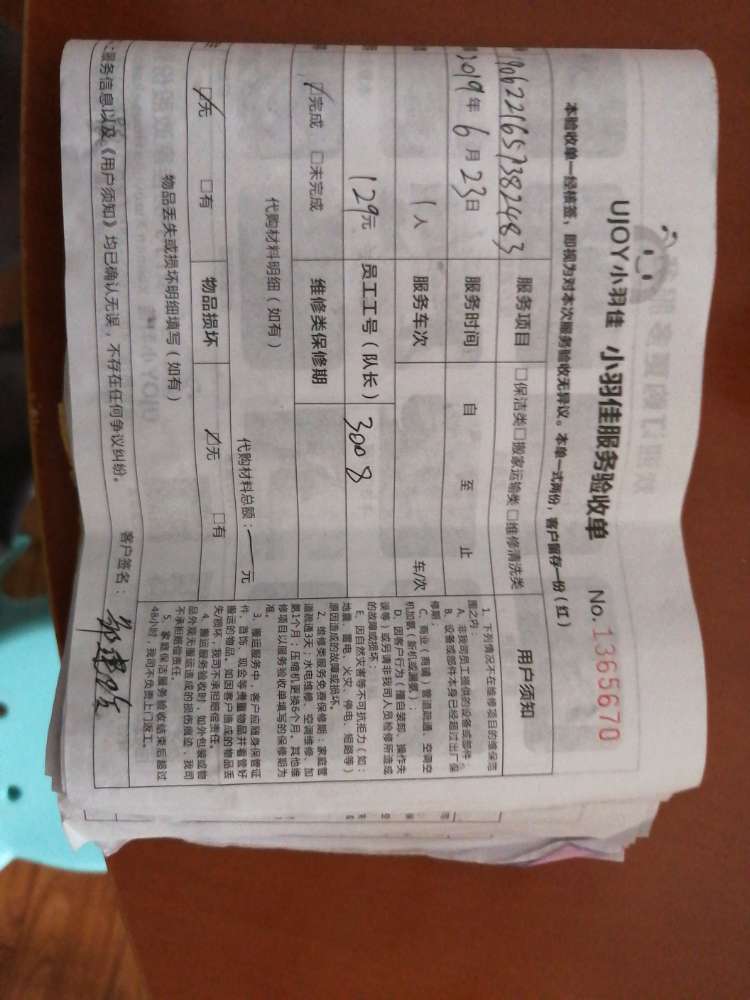 UJOY小羽佳 小羽佳服务验收单 No. 1365670
本验收单一经核签，即视为对本次服务验收无异议。本单一式两份，客户留存一份（红）
服务项目 □保洁类□搬家运输类□维修清洗类
2019年6月23日 服务时间 自 至 止
1人 服务车次 车/次
129元 员工工号（队长） 3008
☑完成 □未完成 维修类保修期
代购材料明细（如有） 代购材料总额：一元
☑无 □有 物品损坏 ☑无 □有
物品丢失或损坏明细填写（如有）
服务信息以及《用户须知》均已确认无误，不存在任何争议纠纷。 客户签名：
用户须知
1、下列情况不在维修项目的维保范
围之内：
A、非我司员工提供的设备或部件。
B、设备或部件本身已经超过出厂保
修期；
C、商业（商铺）管道疏通、空调空
机加氨（新机或漏氨）；
D、因客户行为（擅自装卸、操作失
误等）或另请非我司人员检修所造成
的故障或损坏；
E、因自然灾害等不可抗拒力（如：
地震、雷电、火灾、停电、短路等）
原因造成的故障或损坏。
2、维修类服务免费保修期：家庭管
道疏通3天；水电维修、空调维修、加
氨1个月；压缩机更换6个月。其他维
修项目以服务验收单填写的保修期为
准。
3、搬运服务中，客户应随身保管证
件、首饰、现金等贵重物品并看管好
搬运的物品。如因客户造成的物品丢
失/损坏，我司不承担赔偿责任。
4、搬运服务验收时，如外包装或物
品外观无搬运造成的损伤痕迹，我司
不承担赔偿责任。
5、家庭保洁服务验收结束后超过
48小时，我司不负责上门返工。